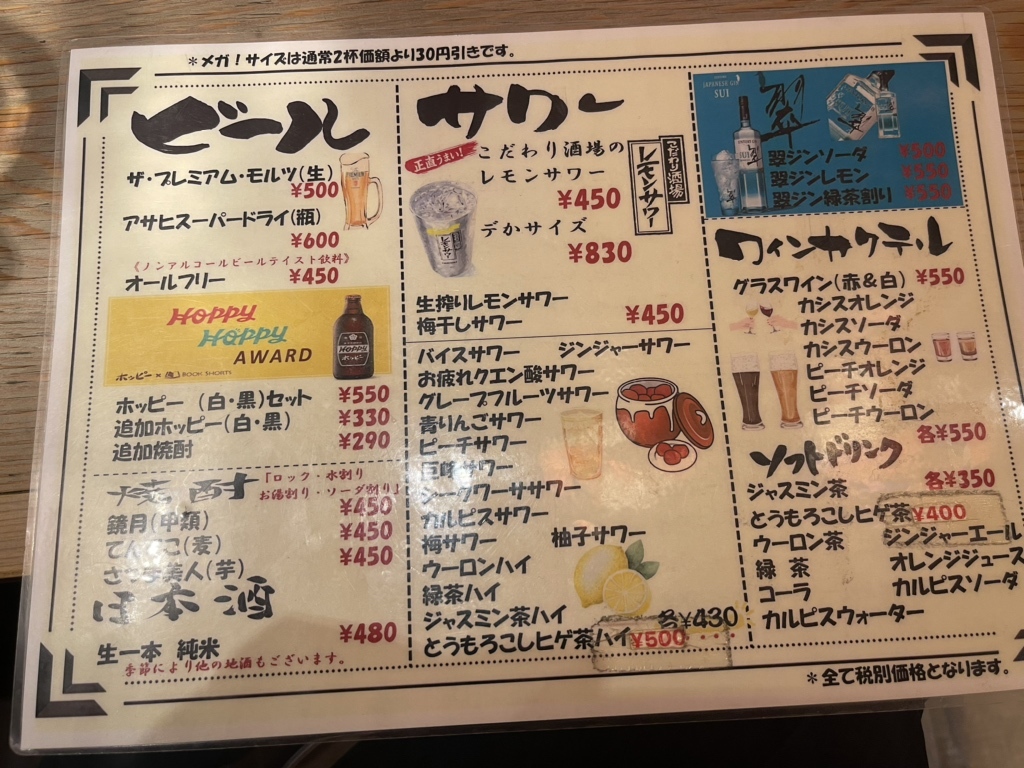 ＊メガ！サイズは通常2杯価額より30円引きです。
ビール
ザ・プレミアム・モルツ(生)
¥500
アサヒスーパードライ(瓶)
¥600
《ノンアルコールビールテイスト飲料》
オールフリー ¥450
HOPPY
HOPPY
AWARD
ホッピー × BOOK SHORTS
HOPPY
ホッピー
ホッピー (白・黒)セット ¥550
追加ホッピー(白・黒) ¥330
追加焼酎 ¥290
焼酎
「ロック・水割り
お湯割り・ソーダ割り」
¥450
鏡月(甲類) ¥450
(麦) ¥450
美人(芋)
日本酒
¥480
生一本 純米
季節により他の地酒もございます。
サワー
正直うまい！
こだわり酒場の
レモンサワー
¥450
デかサイズ
¥830
こだわり酒場
レモンサワー
生搾りレモンサワー
梅干しサワー ¥450
バイスサワー ジンジャーサワー
お疲れクエン酸サワー
グレープフルーツサワー
青りんごサワー
ピーチサワー
巨峰サワー
シークワーササワー
カルピスサワー
梅サワー 柚子サワー
ウーロンハイ
緑茶ハイ
ジャスミン茶ハイ 各¥430
とうもろこしヒゲ茶ハイ ¥500
JAPANESE GIN
SUI
翠
翠ジンソーダ ¥500
翠ジンレモン ¥550
翠ジン緑茶割り ¥550
ワインカクテル
グラスワイン(赤&白) ¥550
カシスオレンジ
カシスソーダ
カシスウーロン
ピーチオレンジ
ピーチソーダ
ピーチウーロン
各¥550
ソフトドリンク
ジャスミン茶 各¥350
とうもろこしヒゲ茶 ¥400
ウーロン茶 ジンジャーエール
緑茶 オレンジジュース
コーラ カルピスソーダ
カルピスウォーター
＊全て税別価格となります。